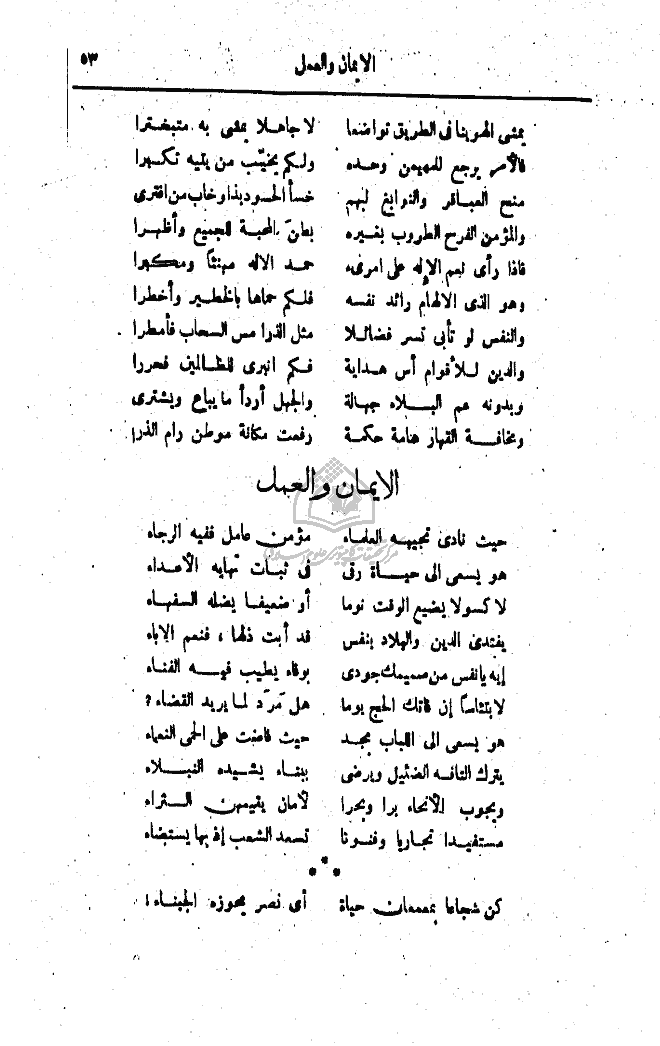 الايمان والعمل ٥٣
يمشى الهوينا فى الطريق تواضعا لا جاهلا يمشى به متبخترا
فالأمر يرجع للمهيمن وحده ولكم يخيّب من يتيه تكبرا
منح العباقر والنوابغ لبهم خسأ الحسود بذا وخاب من افترى
والمؤمن الفرح الطروب بغيره بطن المحبة للجميع وأظهرا
فاذا رأى نعم الإله على امرىء حمد الاله مهنئا ومكبرا
وهو الذى الالهام رائد نفسه فلكم حماها بالخطير وأخطرا
والنفس لو تأبى تسر فضائلا مثل الذرا مس السحاب فأمطرا
والدين للأقوام أس هداية فكم انبرى للظالمين فحررا
وبدونه عم البلاد جهالة والجهل أردأ ما يباع ويشترى
ومخافة القهار هامة حكمة رفعت مكانة موطن رام الذرا
الايمان والعمل
حيث نادى تجيبه العلماء مؤمن عامل ففيه الرجاء
هو يسعى الى حياة رقى فى ثبات تهابه الأعداء
لا كسولا يضيع الوقت نوما أو ضعيفا يضله السفهاء
يفتدى الدين والبلاد بنفس قد أبت ذلها ، فنعم الاباء
إيه يا نفس من صميمك جودى بوفاء يطيب فيه الفناء
لا بتئاسا إن فاتك الحج يوما هل مَردّ لما يريد القضاء ؟
هو يسعى الى اللباب بمجد حيث فاضت على الحمى النعماء
يترك التافه الضئيل ويرضى ببناء يشيده النبلاء
ويجوب الأنحاء برا وبحرا لأمان يقيمهن الثراء
مستفيدا تجاربا وفنونا تسعد الشعب إذ بها يستضاء
* * *
كن شجاعا بمعمعات حياة أى نصر يحوزه الجبناء !